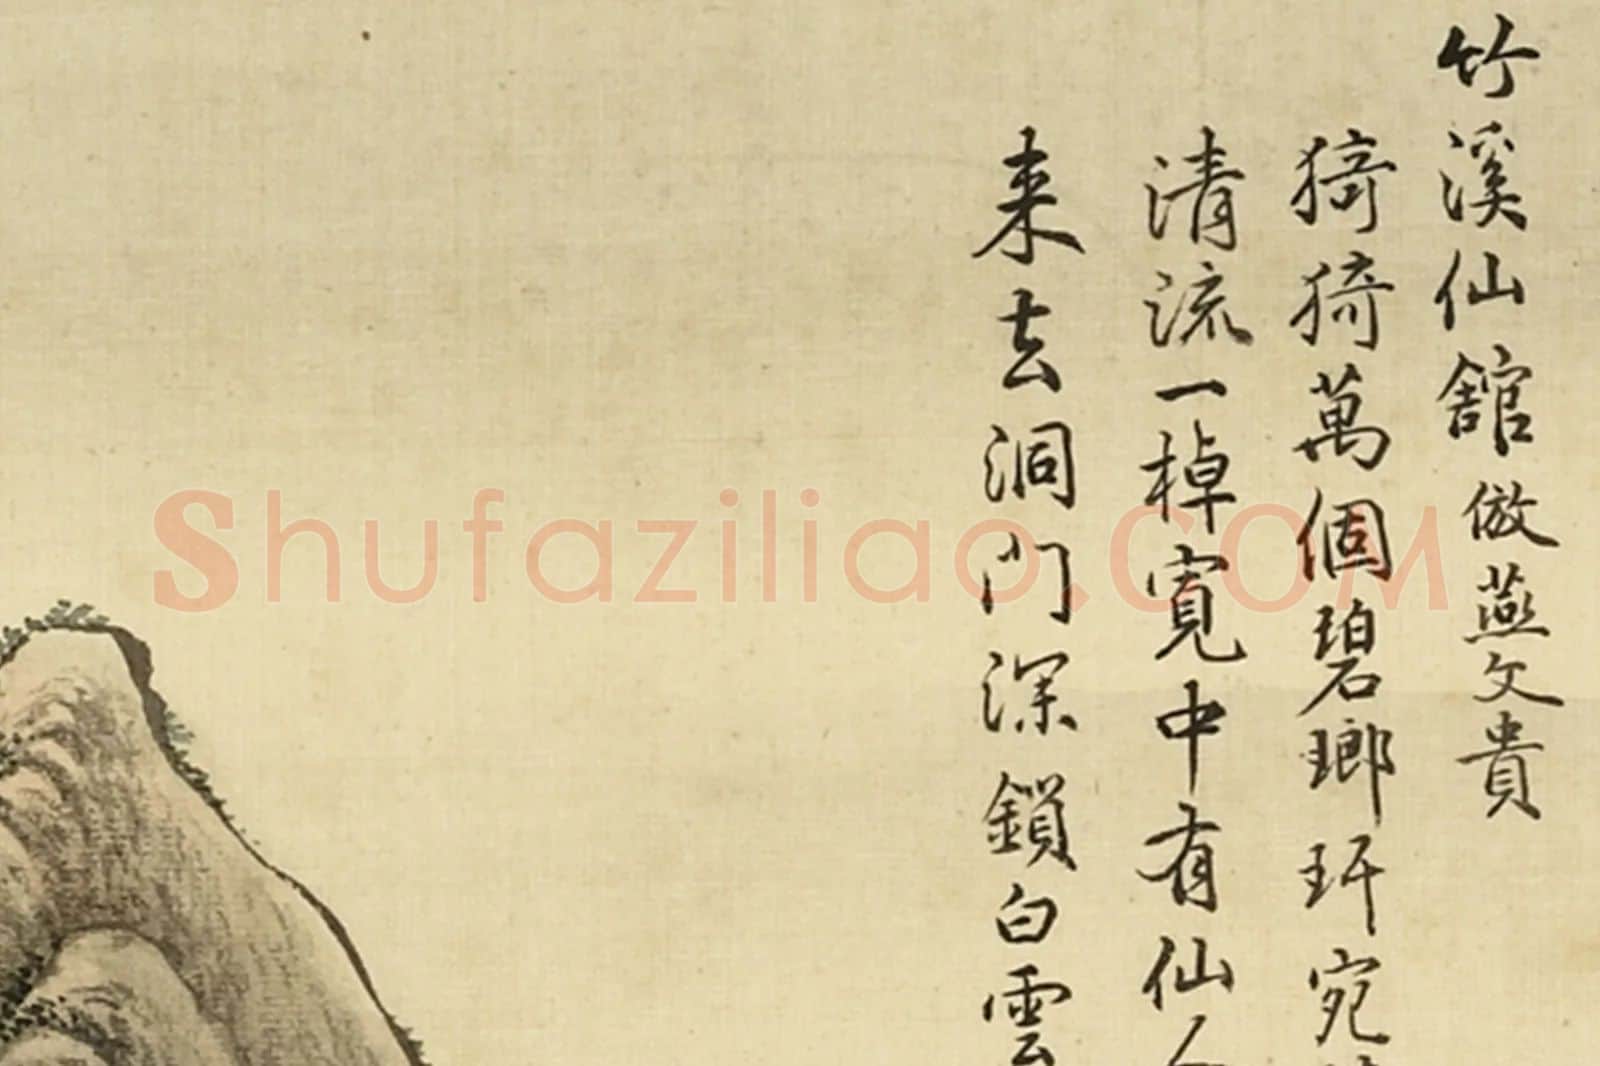 竹溪仙館倣燕文貴
猗猗萬個碧瑯玕宛
清流一棹寬中有仙人
来去洞門深鎖白雲
Shufaziliao.COM